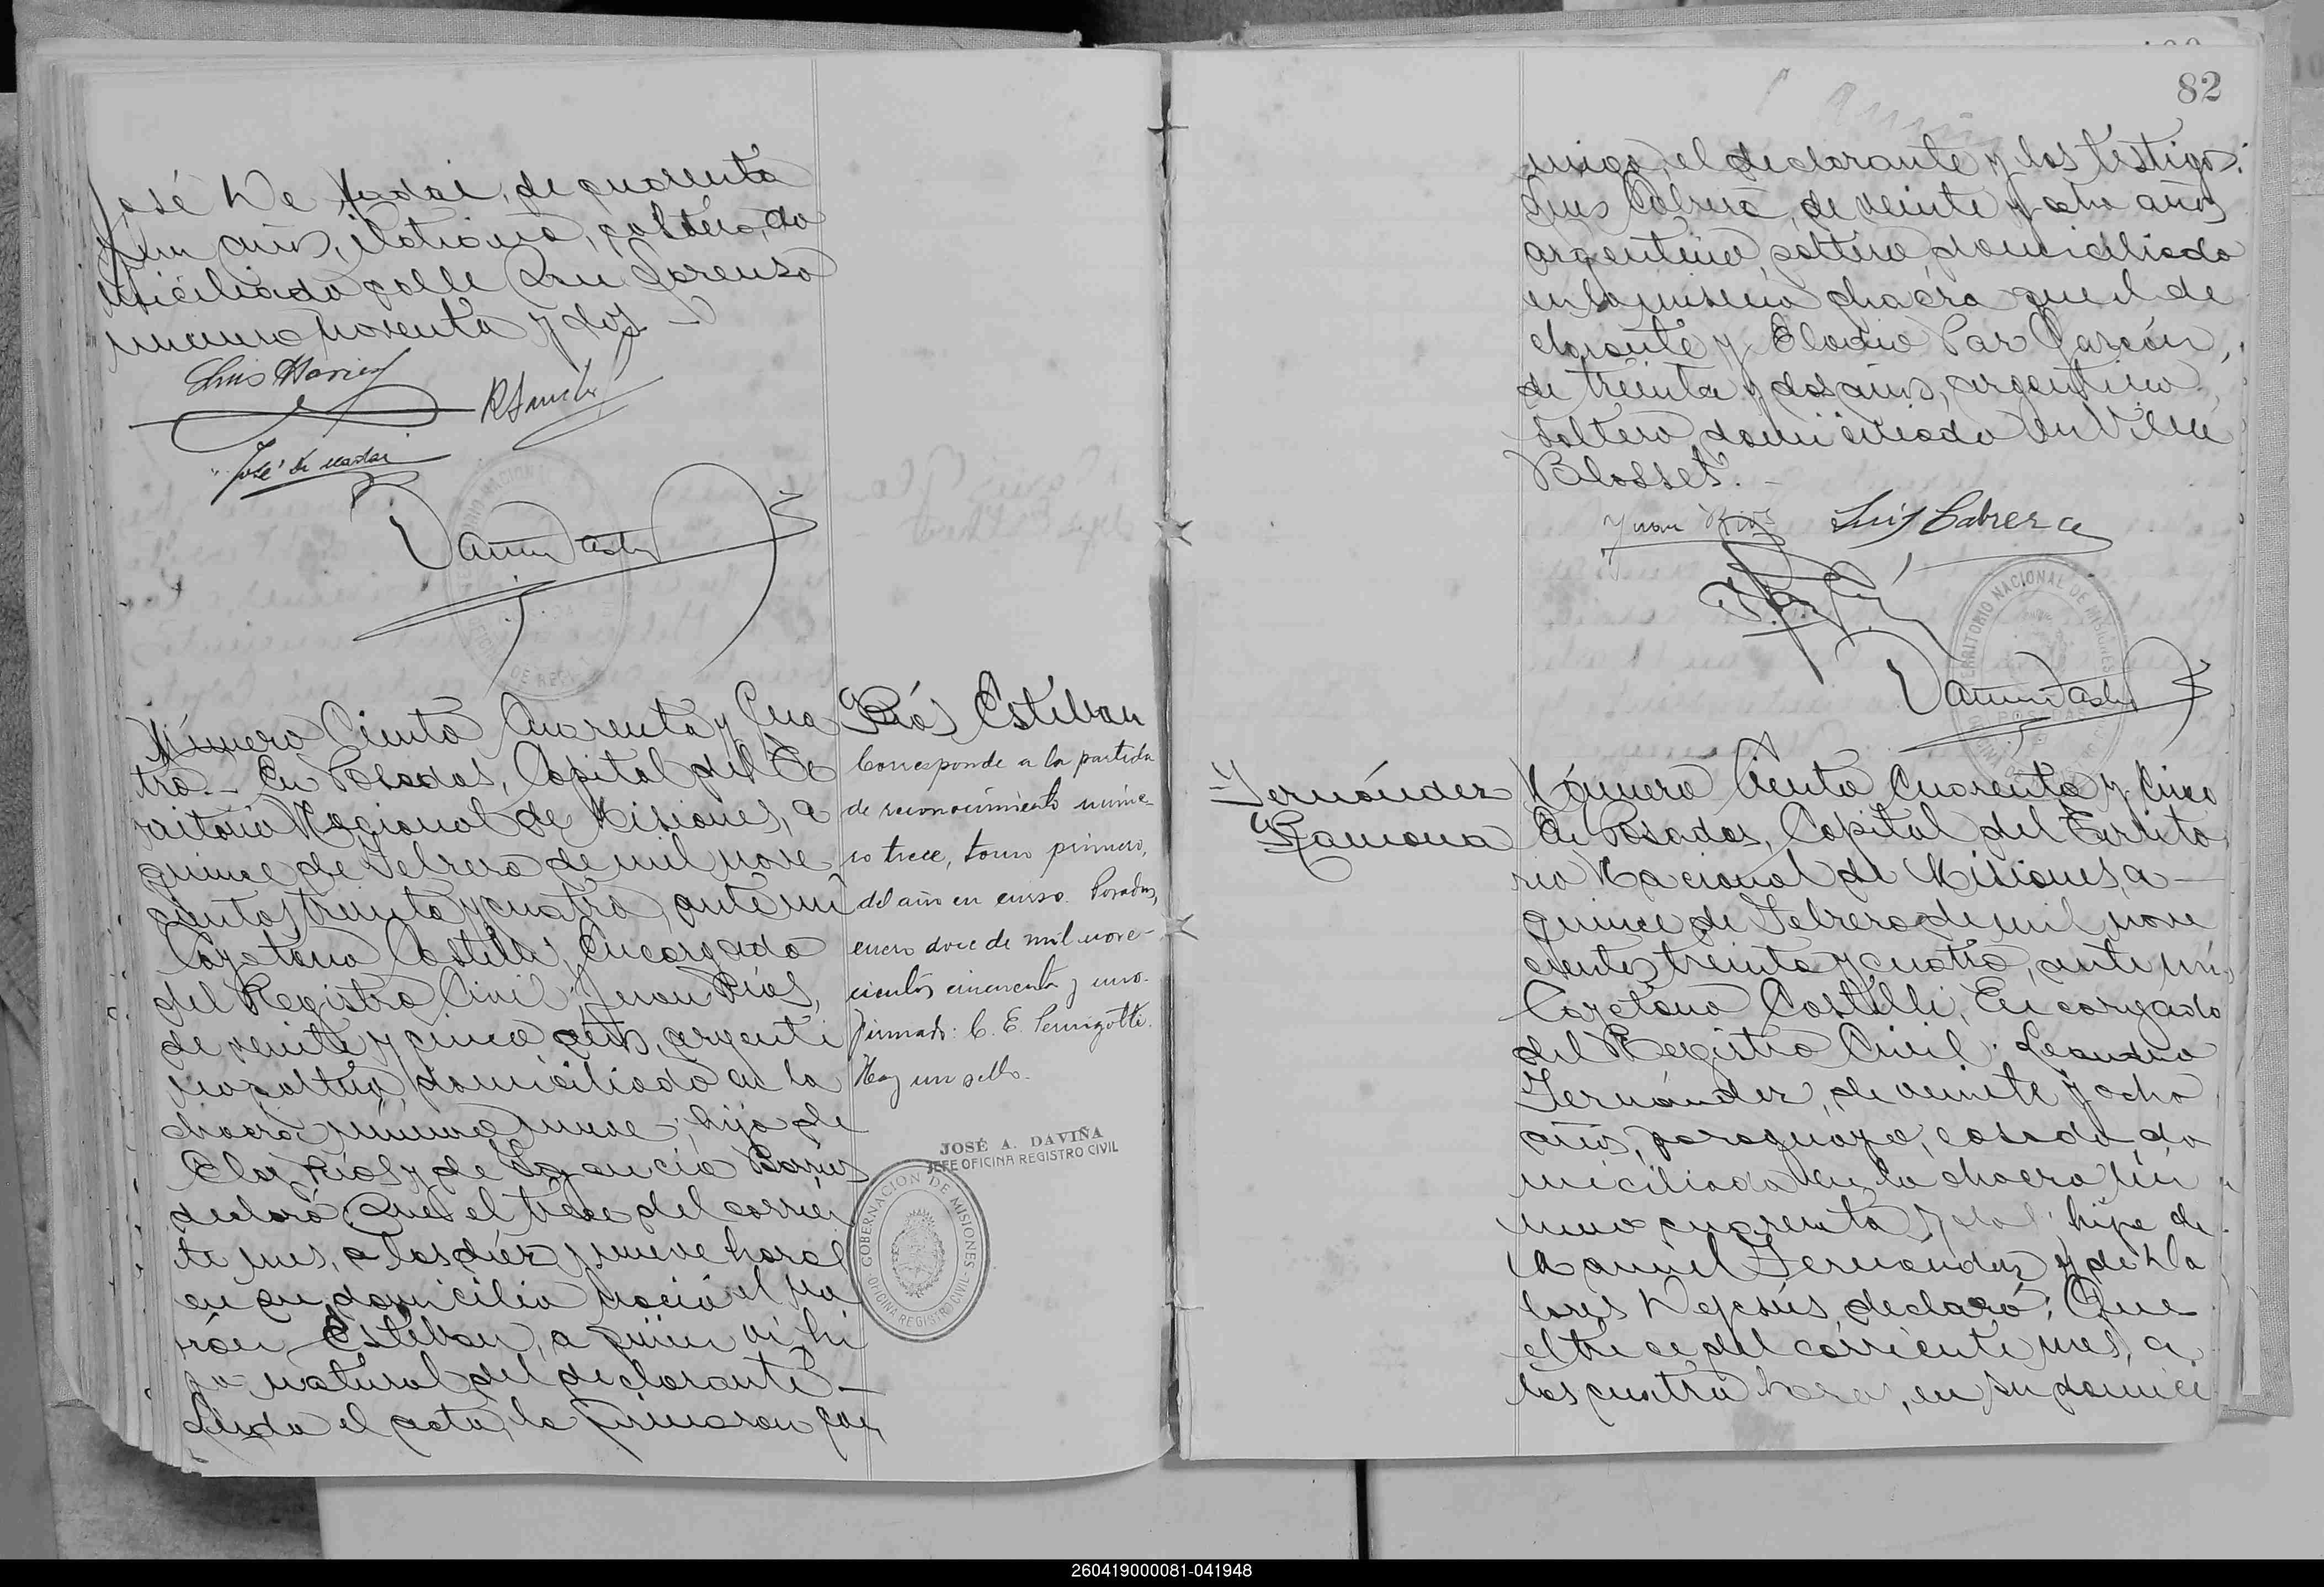 José De Nadai, de cuarenta
y un años, italiano, soltero, do
miciliado calle San Lorenzo
número noventa y dos
José De Nadai
Número Ciento Cuarenta y Cua
tro.- En Posadas, Capital del Te
rritorio Nacional de Misiones, a
quince de Febrero de mil nove
cientos treinta y cuatro, ante mí
Cayetano Castelli, Encargado
del Registro Civil, Juan Ríos,
de veinte y cinco años, argenti
no, soltero, domiciliado en la
chacra número nueve, hijo de
Ríos y de
declaró: Que el trece del corrien
te mes, a las diez y nueve horas
en su domicilio nació el va
rón Estéban, a quien vi, hi
jo natural del declarante.—
Leída el acta, la firmaron con
Ríos Estéban
Corresponde a la partida
de reconocimiento núme-
ro trece, tomo primero,
del año en curso. Posadas,
enero doce de mil nove-
cientos cincuenta y uno.
Firmado: C. E. Pernigotti.
Hay un sello.
JOSÉ A. DAVIÑA
JEFE OFICINA REGISTRO CIVIL
GOBERNACION DE MISIONES
OFICINA REGISTRO CIVIL
82
migo, el declarante y los testigos:
Luis Cabrera, de veinte y ocho años
argentino, soltero, domiciliado
en la misma chacra que el de
clarante y Eladio Garzón,
de treinta y dos años, argentino,
soltero, domiciliado en Villa
Blosset.
Juan Rios Luis Cabrera
TERRITORIO NACIONAL DE MISIONES
POSADAS
Fernández
Ramona
Número Ciento Cuarenta y Cinco
En Posadas, Capital del Territo
rio Nacional de Misiones, a
quince de Febrero de mil nove
cientos treinta y cuatro, ante mí,
Cayetano Castelli, Encargado
del Registro Civil, Leandro
Fernández, de veinte y ocho
años, paraguayo, casado, do
miciliado en la chacra nú
mero cuarenta y dos, hijo de
Manuel Fernández y de Do
lores Dejesús, declaró: Que
el trece del corriente mes, a
las cuatro horas, en su domici
260419000081-041948